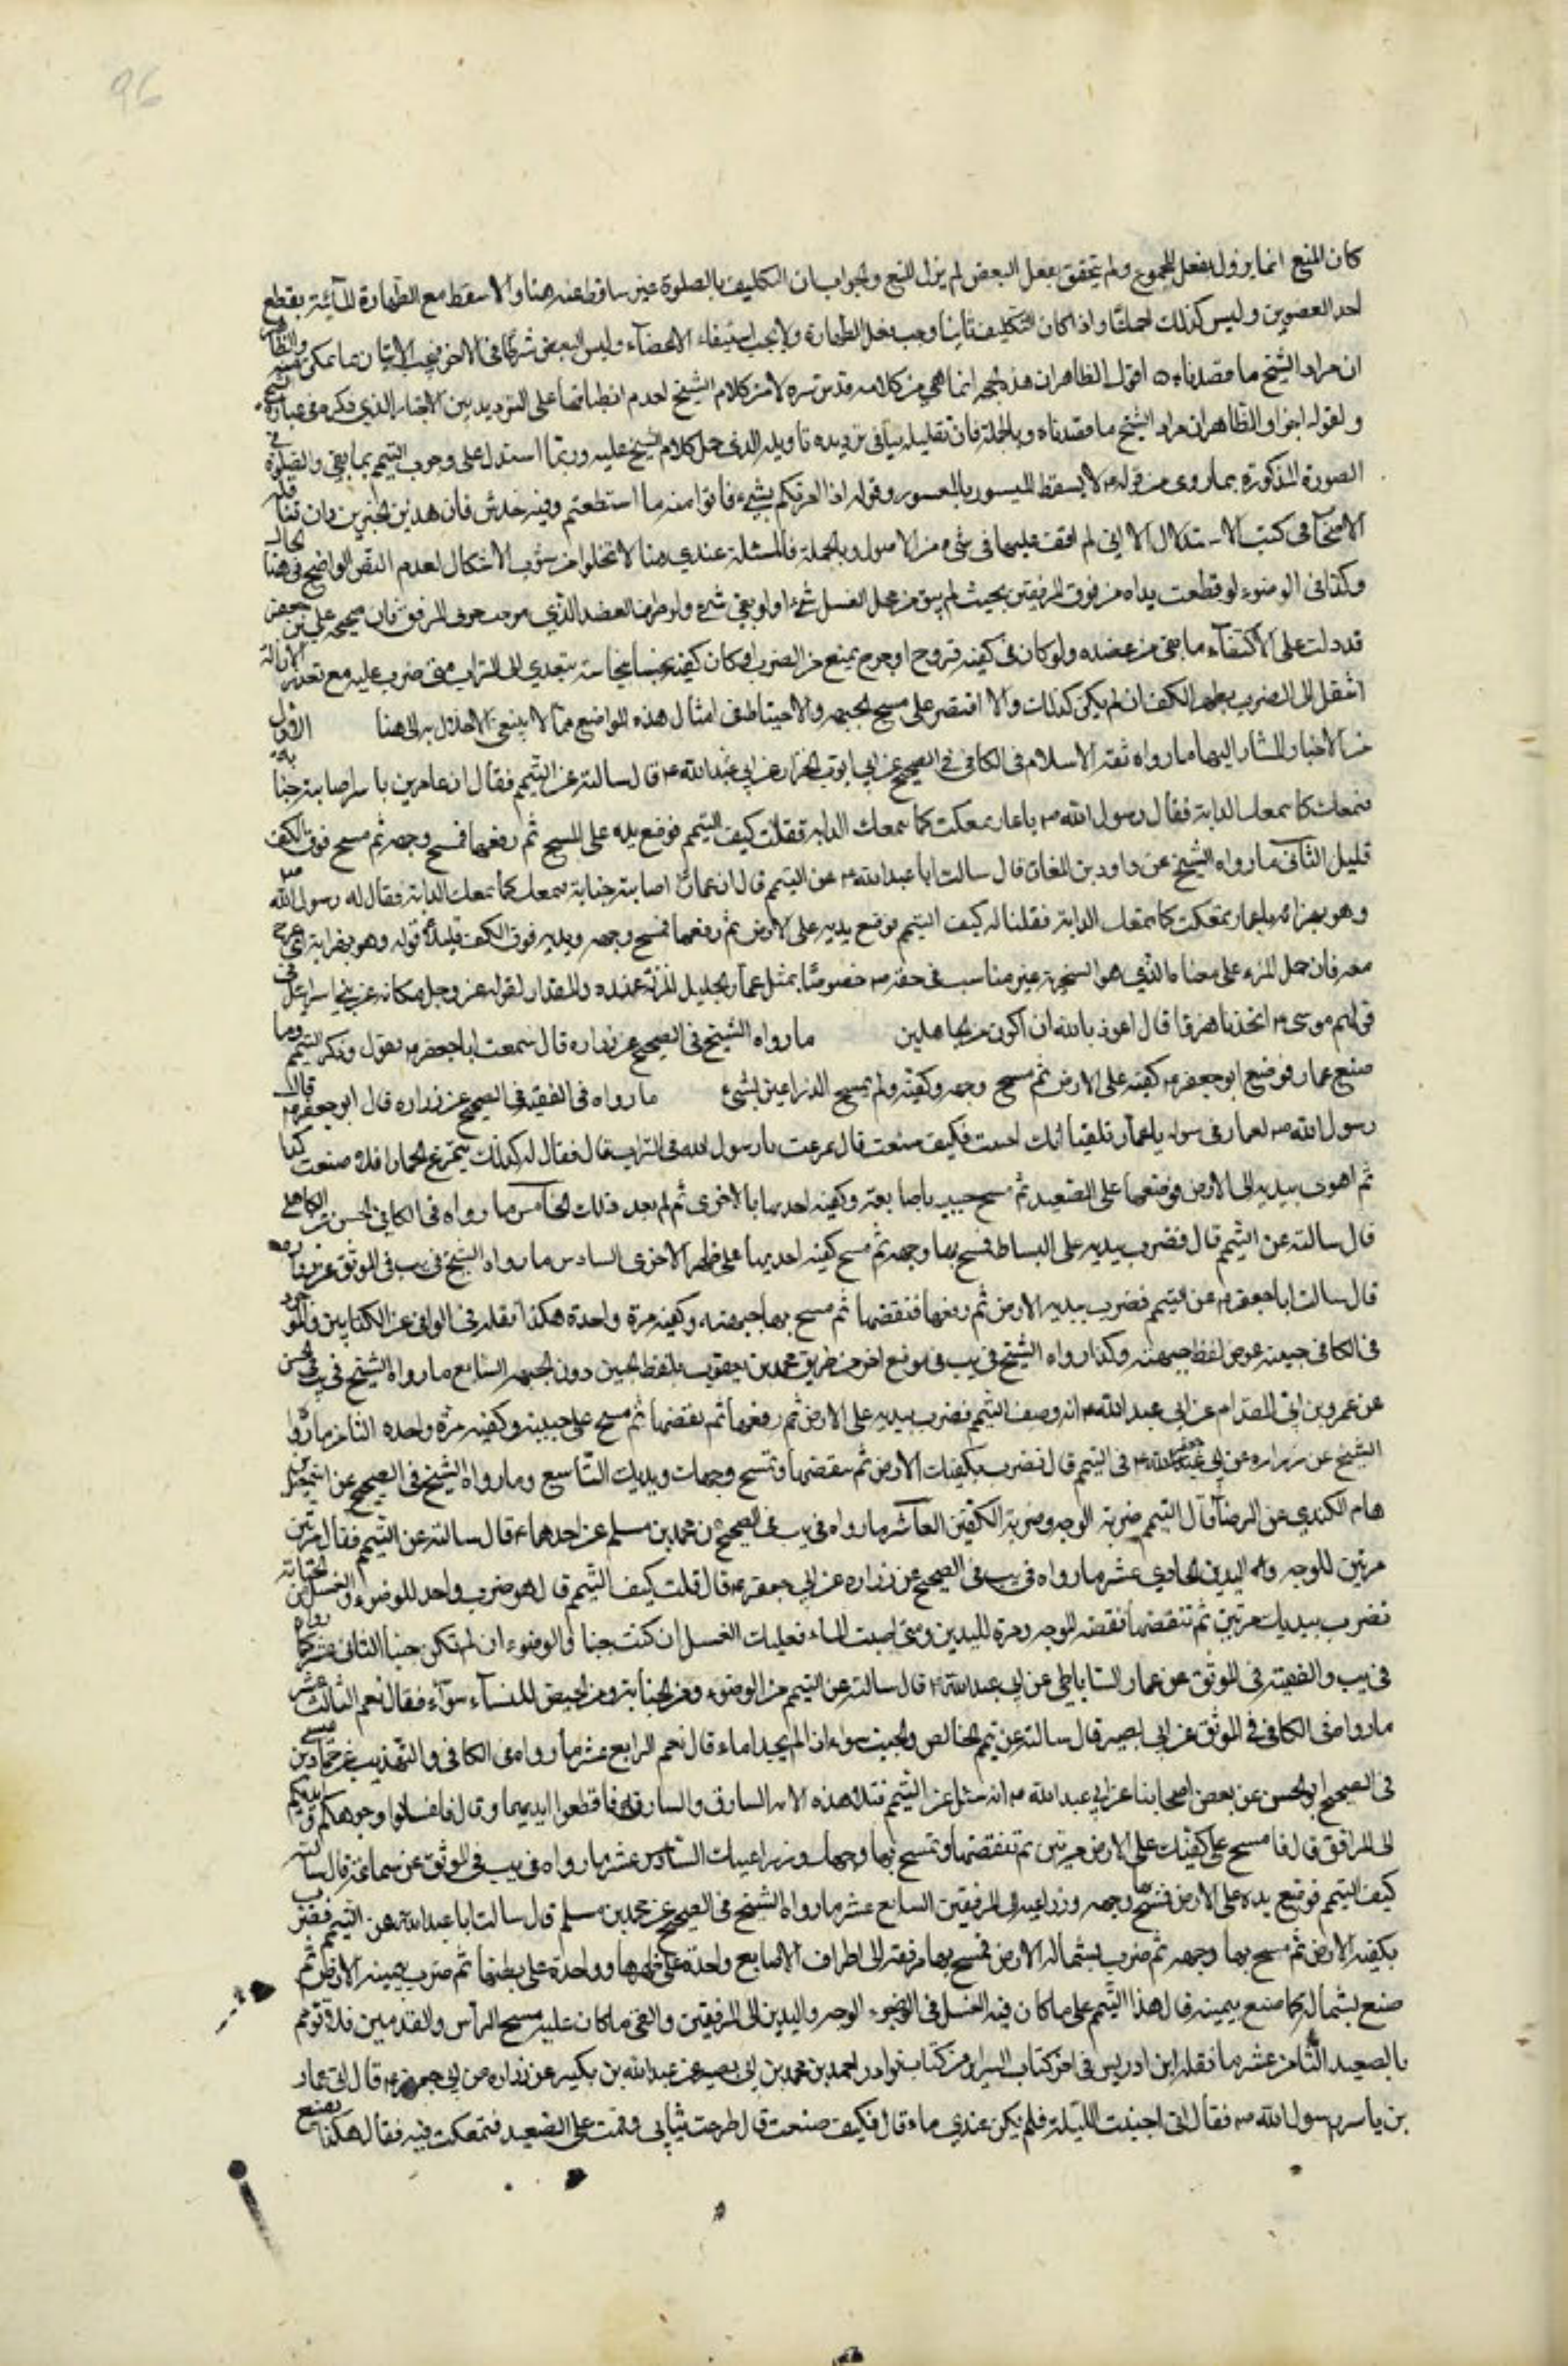 96
كان المنع انما يزول بفعل المجموع ولم يتحقق بفعل البعض لم يزل المنع والجواب ان التكليف بالصلوة غير ساقط عنه هنا والا لاسقط مع الطهارة المائية بقطع
احد العضوين وليس كذلك اجماعا واذا كان التكليف ثابتا وجب فعل الطهارة ولا يجب استيفاء الاعضاء وليس البعض شرطا في الاخر فيجب الاتيان بما يمكن منه والظاهر
ان مراد الشيخ ما قصدناه اقول الظاهر ان هذه انما هي من كلامه قدس سره لا من كلام الشيخ لعدم انطباقها على الترديد بين الذي ذكره في عبارة الشيخ
ولقوله اخرا والظاهر ان مراد الشيخ ما قصدناه وبالجملة فان تعليله ينافي ترديده تاويله الذي حمل كلام الشيخ عليه وربما استدل على وجوب التيمم بما بقي والصلوة في
الصورة المذكورة بما روي من قوله لا يسقط الميسور بالمعسور وقوله اذا امرتكم بشيء فأتوا منه ما استطعتم وفيه خدش فان هذين الخبرين وان تناقلهما
الاصحاب في كتب الاستدلال الا اني لم اقف عليهما في شيء من الاصول وبالجملة فالمسئلة عندي هنا لا تخلوا من شوب الاشكال لعدم النص الواضح في هذا الحال
وكذا في الوضوء لو قطعت يداه من فوق المرفقين بحيث لم يبق من محل الغسل شيء او لو بقي شيء ولو طرف العضد الذي هو جزء المرفق فان صحيحة علي بن جعفر
قد دلت على الاكتفاء ما بقي من عضده ولو كان في كفيه قروح او جروح يمنع من الضرب او كان كفيه نجسا نجاسة تتعدى الى التراب متى ضرب عليه مع تعذر الازالة
انتقل الى الضرب بظهر الكف ان لم يكن كذلك والا اقتصر على مسح الجبهة والاحتياط في امثال هذه المواضع مما لا ينبغي الاخلال به الى هنا الاول
من الاخبار المشار اليها ما رواه ثقة الاسلام في الكافي في الصحيح عن ابي ايوب الخزاز عن ابي عبد الله ع قال سالته عن التيمم فقال ان عمار بن ياسر اصابته جنابة
فتمعك كما تتمعك الدابة فقال رسول الله ص يا عمار تمعكت كما تتمعك الدابة فقلت كيف التيمم فوضع يده على المسح ثم رفعها فمسح وجهه ثم مسح فوق الكف
قليلا الثاني ما رواه الشيخ عن داود بن النعمان قال سالت ابا عبد الله ع عن التيمم قال ان عمارا اصابته جنابة فتمعك كما تتمعك الدابة فقال له رسول الله ص
وهو يهزأ به يا عمار تمعكت كما تتمعك الدابة فقلنا له كيف التيمم فوضع يديه على الارض ثم رفعهما فمسح وجهه ويديه فوق الكف قليلا قوله وهو يهزأ به اي يمزح
معه فان حمل الهزء على معناه الذي هو السخرية غير مناسب في حقه ص خصوصا بمثل عمار الجليل المنزلة عنده والمقدار لقوله عز وجل حكاية عن بني اسرائيل في
قولهم موسى اتتخذنا هزوا قال اعوذ بالله ان اكون من الجاهلين ما رواه الشيخ في الصحيح عن زراره قال سمعت ابا جعفر ع يقول وذكر التيمم وما
صنع عمار فوضع ابو جعفر ع كفيه على الارض ثم مسح وجهه وكفيه ولم يمسح الذراعين بشيء ما رواه في الفقيه في الصحيح عن زراره قال قال ابو جعفر ع قال
رسول الله ص لعمار في سفر له يا عمار بلغنا انك اجنبت فكيف صنعت قال تمرغت يا رسول الله في التراب قال فقال له كذلك يتمرغ الحمار افلا صنعت كذا
ثم اهوى بيديه الى الارض فوضعهما على الصعيد ثم مسح جبينه باصابعه وكفيه احديهما بالاخرى ثم لم يعد ذلك الخامس ما رواه في الكافي في الحسن عن الكاهلي
قال سالته عن التيمم قال فضرب بيديه على البساط فمسح بهما وجهه ثم مسح كفيه احديهما على ظهر الاخرى السادس ما رواه الشيخ في يب في الموثق عن زراره
قال سالت ابا جعفر ع عن التيمم فضرب بيديه الارض ثم رفعها فنفضها ثم مسح بها جبهته وكفيه مرة واحدة هكذا نقله في الوافي عن الكتابين والموجود
في الكافي جبينه عوض لفظ جبهته وكذا رواه الشيخ في يب في موضع اخر من طريق محمد بن يعقوب بلفظ الجبين دون الجبهة السابع ما رواه الشيخ في يب في الحسن
عن عمرو بن ابي المقدام عن ابي عبد الله ع انه وصف التيمم فضرب بيديه على الارض ثم رفعهما ثم نفضهما ثم مسح على جبينه وكفيه مرة واحدة الثامن ما رواه
الشيخ عن زراره عن ابي جعفر ع في التيمم قال تضرب بكفيك الارض ثم تنفضهما وتمسح وجهك ويديك التاسع وما رواه الشيخ في الصحيح عن اسمعيل بن
همام الكندي عن الرضا ع قال التيمم ضربة للوجه وضربة للكفين العاشر ما رواه في يب في الصحيح عن محمد بن مسلم عن احدهما ع قال سالته عن التيمم فقال مرتين
مرتين للوجه واليدين الحادي عشر ما رواه في يب في الصحيح عن زراره عن ابي جعفر ع قال قلت كيف التيمم قال هو ضرب واحد للوضوء والغسل من الجنابة
تضرب بيديك مرتين ثم تنفضهما نفضة للوجه ومرة لليدين ومتى اصبت الماء فعليك الغسل ان كنت جنبا والوضوء ان لم تكن جنبا الثاني عشر ما رواه
في يب والفقيه في الموثق عن عمار الساباطي عن ابي عبد الله ع قال سالته عن التيمم من الوضوء ومن الجنابة ومن الحيض للنساء سواء فقال نعم الثالث عشر
ما رواه في الكافي في الموثق عن ابي بصير قال سالته عن تيمم الحائض والجنب سواء اذا لم يجدا ماء قال نعم الرابع عشر ما رواه في الكافي والتهذيب عن حماد بن عيسى
في الصحيح او الحسن عن بعض اصحابنا عن ابي عبد الله ع انه سئل عن التيمم فتلا هذه الاية السارق والسارقة فاقطعوا ايديهما وقال فاغسلوا وجوهكم وايديكم
الى المرافق قال فامسح على كفيك على الارض مرتين ثم تنفضهما وتمسح بهما وجهك وذراعيك السادس عشر ما رواه في يب في الموثق عن سماعة قال سالته
كيف التيمم فوضع يده على الارض فمسح بها وجهه وذراعيه الى المرفقين السابع عشر ما رواه الشيخ في الصحيح عن محمد بن مسلم قال سالت ابا عبد الله ع عن التيمم فضرب
بكفيه الارض ثم مسح بهما وجهه ثم ضرب بشماله الارض فمسح بها مرفقه الى اطراف الاصابع واحدة على ظهرها وواحدة على بطنها ثم ضرب بيمينه الارض ثم
صنع بشماله كما صنع بيمينه قال هذا التيمم على ما كان فيه الغسل في الوضوء الوجه واليدين الى المرفقين والقى ما كان عليه مسح الرأس والقدمين فلا تؤمم
بالصعيد الثامن عشر ما نقله ابن ادريس في اخر كتاب السراير من كتاب نوادر احمد بن محمد بن ابي نصر عن عبد الله بن بكير عن زراره عن ابي جعفر ع قال اتى عمار
بن ياسر رسول الله ص فقال اني اجنبت الليلة فلم يكن عندي ماء قال فكيف صنعت قال طرحت ثيابي وقمت على الصعيد فتمعكت فيه فقال هكذا يصنع